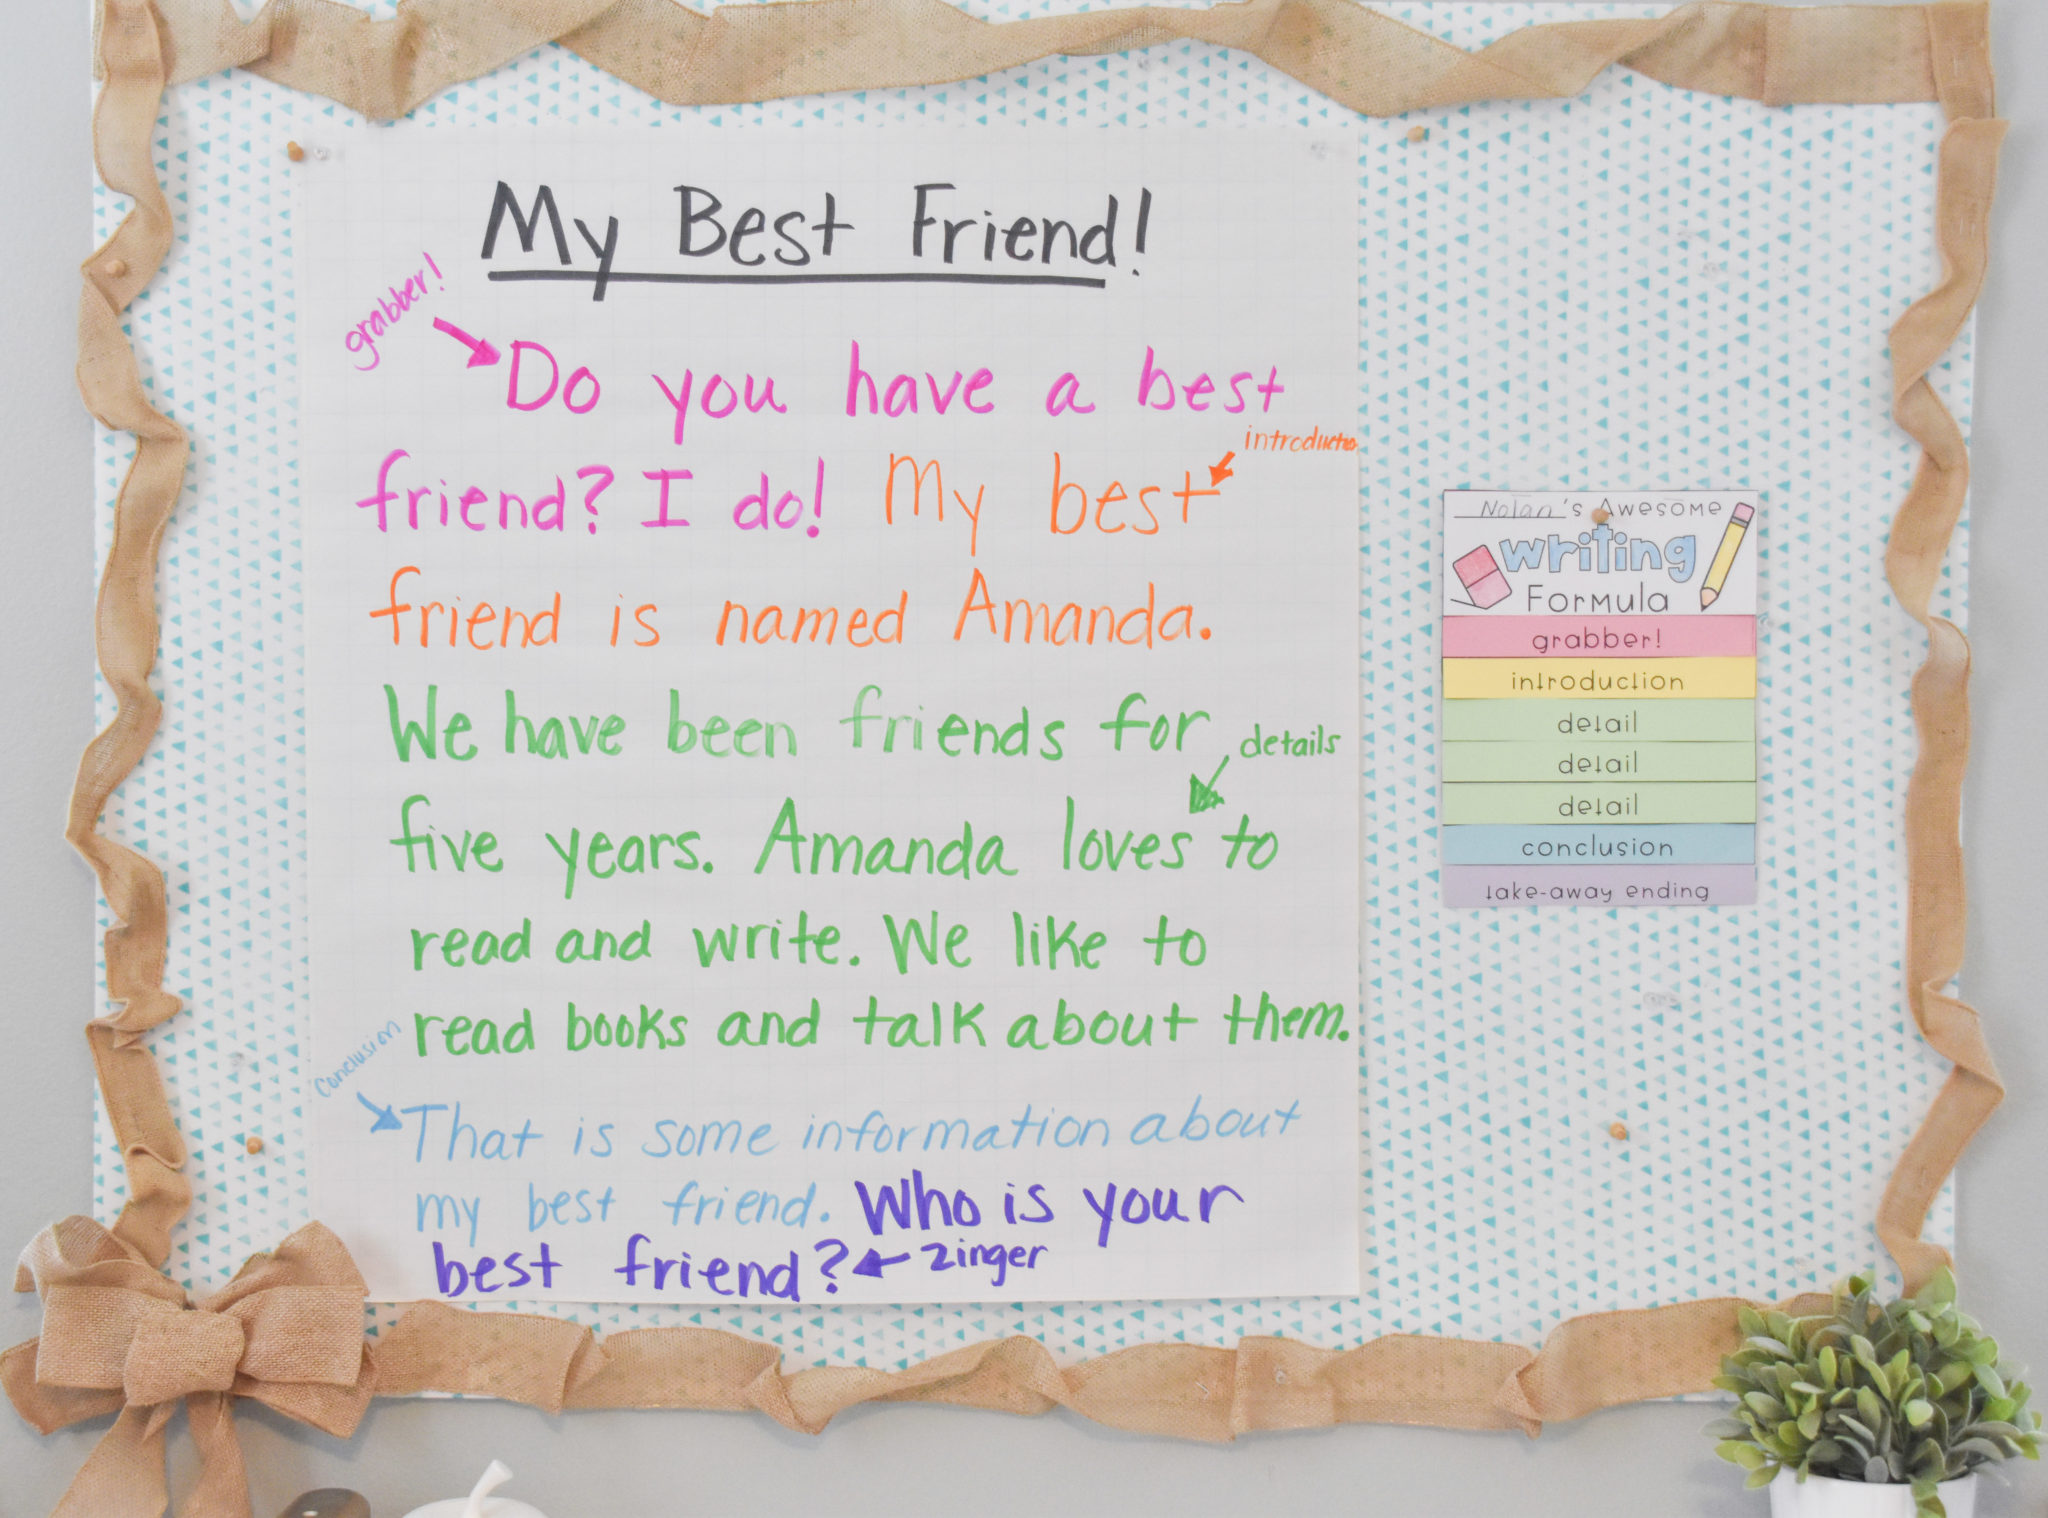 My Best Friend!
grabber!
Do you have a best
introduction
friend? I do! My best
friend is named Amanda.
We have been friends for
details
five years. Amanda loves to
read and write. We like to
read books and talk about them.
Conclusion
That is some information about
my best friend. Who is your
best friend? zinger
Nolan's Awesome
writing
Formula
grabber!
introduction
detail
detail
detail
conclusion
take-away ending